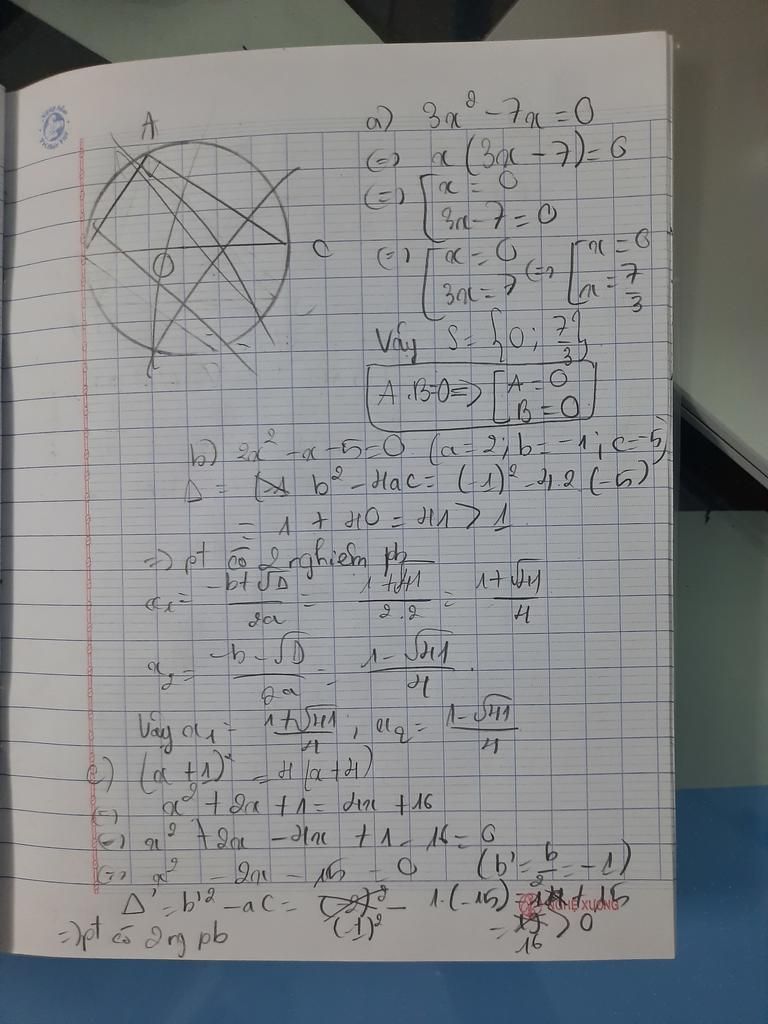 A
C
a) 3x² - 7x = 0
(=) x(3x - 7) = 0
(=) [x = 0
3x - 7 = 0
(=) [x = 0
3x = 7 (=) [x = 0
x = 7/3
Vậy S = {0; 7/3}
A.B=0 => [A = 0
B = 0
b) 2x² - x - 5 = 0 (a = 2; b = -1; c = -5)
Δ = b² - 4ac = (-1)² - 4.2(-5)
= 1 + 40 = 41 > 1
=> pt có 2 nghiệm pb
x₁ = -b+√Δ/2a = 1+√41/2.2 = 1+√41/4
x₂ = -b-√Δ/2a = 1-√41/4
Vậy x₁ = 1+√41/4; x₂ = 1-√41/4
c) (x+1)² = 4(x+4)
(=) x² + 2x + 1 = 4x + 16
(=) x² + 2x - 4x + 1 - 16 = 0
(=) x² - 2x - 15 = 0 (b' = b/2 = -1)
Δ' = b'² - ac = (-1)² - 1.(-15) = 1 + 15
= 16 > 0
=> pt có 2 ng pb